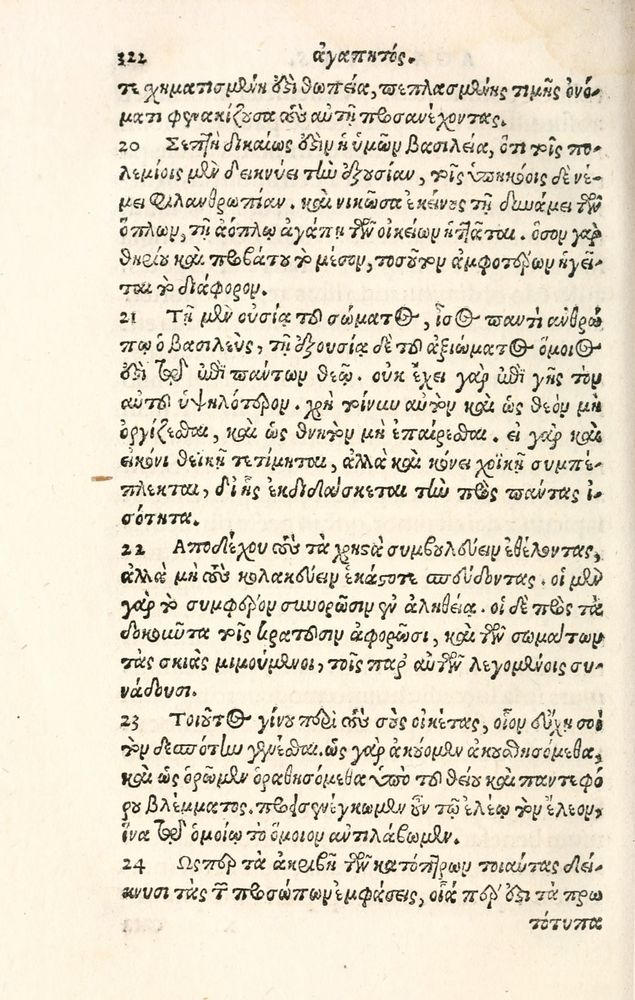 322 ἀγαπητός.
τε χηματισμένη ὅτι θωπεία, πεπλασμένης τιμῆς ὀνό-
ματι φενακίζουσα τοὺς αὐτῇ προσανέχοντας.
20 Σεπτὴ δικαίως ἐστὶν ἡ ὑμῶν βασιλεία, ὅτι τοῖς πο-
λεμίοις μὲν δεικνύει τὴν ἐξουσίαν, τοῖς ὑπηκόοις δὲ νέ-
μει φιλανθρωπίαν. καὶ νικῶσα ἐκείνους τῇ δυνάμει τῶν
ὅπλων, τῇ ἀόπλῳ ἀγάπῃ τῶν οἰκείων ἡττᾶται. ὅσον γὰρ
θηρίου καὶ προβάτου τὸ μέσον, τοσοῦτον ἀμφοτέρων ἡγεῖ-
ται τὸ διάφορον.
21 Τῇ μὲν οὐσίᾳ τοῦ σώματος, ἴσος παντὶ ἀνθρώ
πῳ ὁ βασιλεὺς, τῇ ἐξουσίᾳ δὲ τοῦ ἀξιώματος ὅμοιός
ἐστι τῷ ἐπὶ πάντων θεῷ. οὐκ ἔχει γὰρ ἐπὶ γῆς τὸν
αὐτοῦ ὑψηλότερον. χρὴ τοίνυν αὐτὸν καὶ ὡς θεὸν μὴ
ὀργίζεσθαι, καὶ ὡς θνητὸν μὴ ἐπαίρεσθαι. εἰ γὰρ καὶ
εἰκόνι θεϊκῇ τετίμηται, ἀλλὰ καὶ κόνει χοϊκῇ συμπέ-
πλεκται, δι' ἧς ἐκδιδάσκεται τὴν πρὸς πάντας ἰ-
σότητα.
22 Αποδέχου τοὺς τὰ χρηστὰ συμβουλεύειν ἐθέλοντας,
ἀλλὰ μὴ τοὺς κολακεύειν ἑκάστοτε σπεύδοντας. οἱ μὲν
γὰρ τὸ συμφέρον συνορῶσιν ἐν ἀληθείᾳ. οἱ δὲ πρὸς τὰ
δοκοῦντα τοῖς κρατοῦσιν ἀφορῶσι, καὶ τῶν σωμάτων
τὰς σκιὰς μιμούμενοι, τοῖς παρ' αὐτῶν λεγομένοις συ-
νᾴδουσι.
23 Τοιοῦτος γίνου περὶ τοὺς σοὺς οἰκέτας, οἷον εὔχῃ σοι
τὸν δεσπότην γενέσθαι. ὡς γὰρ ἀκούομεν ἀκουσθησόμεθα,
καὶ ὡς ὁρῶμεν ὁραθησόμεθα ὑπὸ τοῦ θείου καὶ παντεφό
ρου βλέμματος. προσενέγκωμεν οὖν τῷ ἐλέῳ τὸν ἔλεον,
ἵνα τῷ ὁμοίῳ τὸ ὅμοιον ἀντιλάβωμεν.
24 Ωσπερ τὰ ἀκριβῆ τῶν κατόπτρων τοιαύτας δεί-
κνυσι τὰς τῶν προσώπων ἐμφάσεις, οἷά περ ἐστὶ τὰ πρω
τότυπα